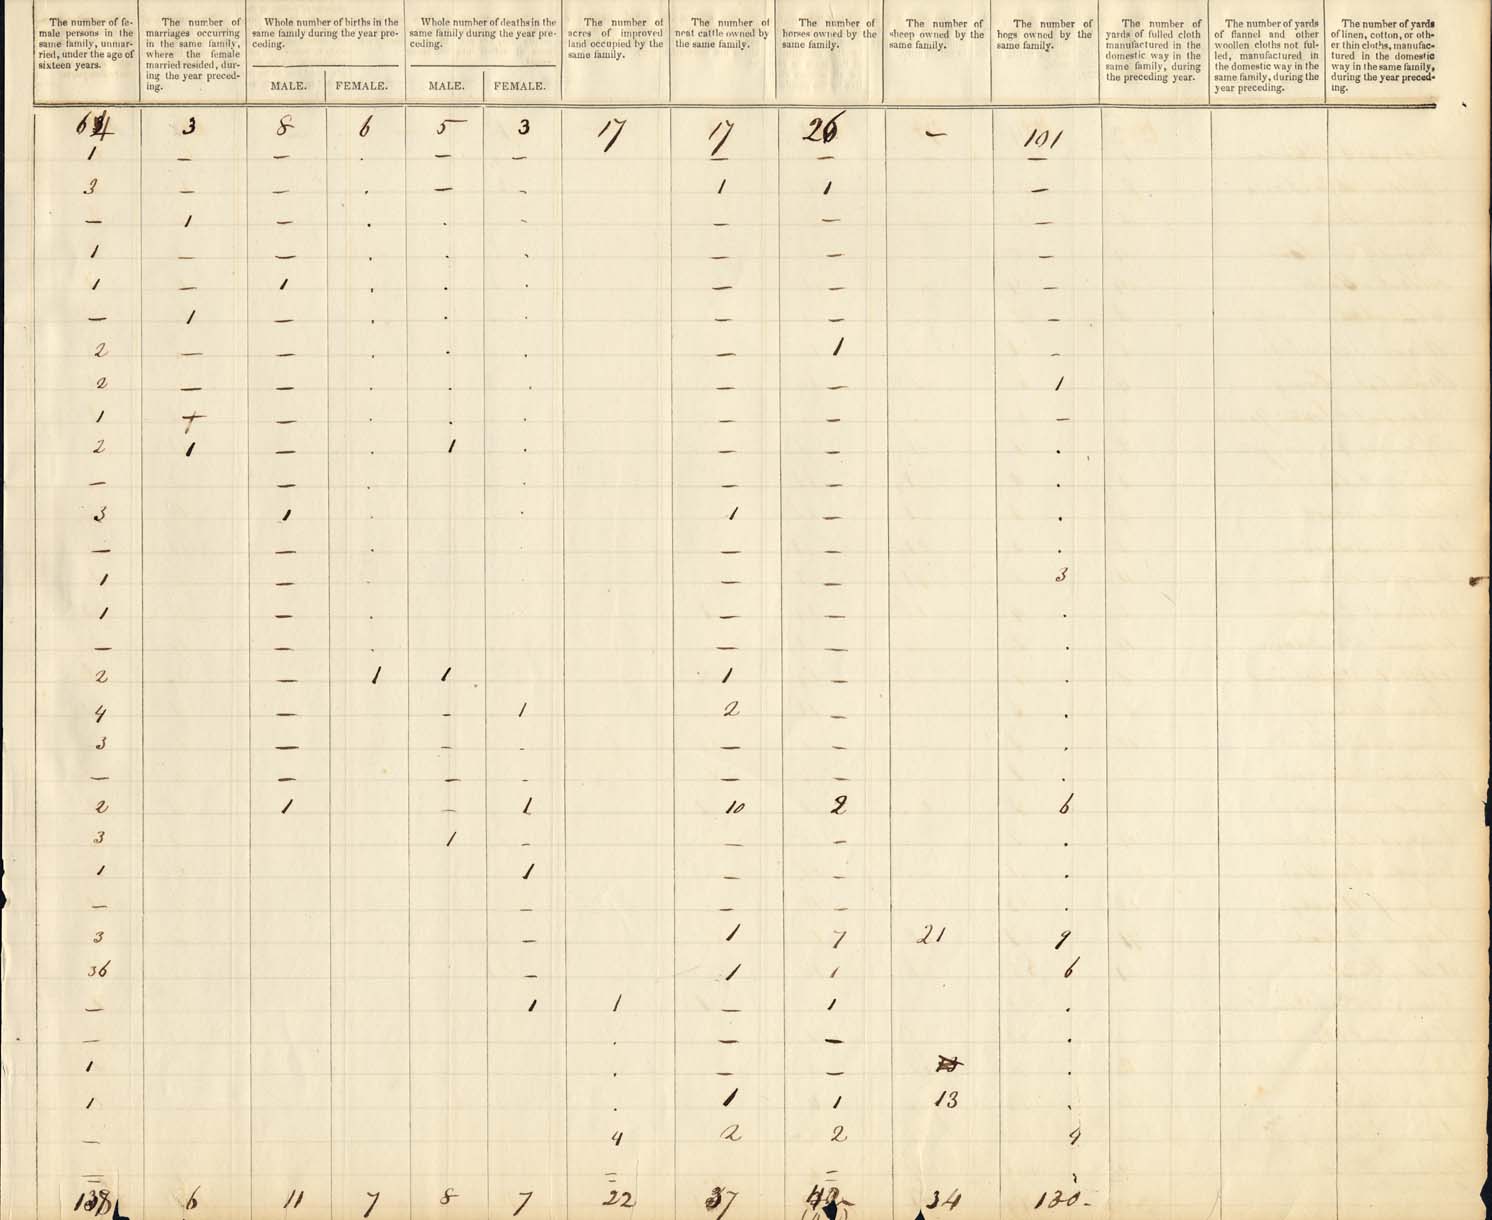 The number of fe-
male persons in the
same family, unmar-
ried, under the age of
sixteen years.
The number of
marriages occurring
in the same family,
where the female
married resided, dur-
ing the year preced-
ing.
Whole number of births in the
same family during the year pre-
ceding.
MALE. FEMALE.
Whole number of deaths in the
same family during the year pre-
ceding.
MALE. FEMALE.
The number of
acres of improved
land occupied by the
same family.
The number of
neat cattle owned by
the same family.
The number of
horses owned by the
same family.
The number of
sheep owned by the
same family.
The number of
hogs owned by the
same family.
The number of
yards of fulled cloth
manufactured in the
domestic way in the
same family, during
the preceding year.
The number of yards
of flannel and other
woollen cloths not ful-
led, manufactured in
the domestic way in the
same family, during the
year preceding.
The number of yards
of linen, cotton, or oth-
er thin cloths, manufac-
tured in the domestic
way in the same family,
during the year preced-
ing.
64 3 8 6 5 3 17 17 26 – 101
1 – – . – – – – –
3 – – . – - 1 1 –
– 1 – . . - – – –
1 – – . . . – – –
1 – 1 . . . – – –
– 1 – . . . – – –
2 – – . . . – 1 -
2 – – . . . – – 1
1 – . . . – – –
2 1 – . 1 . – – .
– – . . – – .
3 1 . . 1 – .
– – . – – .
1 – . – – 3
1 – . – – .
– – . – – .
2 – 1 1 1 – .
4 – - 1 2 – .
3 – - - – – .
– – – - – – .
2 1 – 1 10 2 6
3 1 - – – .
1 1 – – .
– – – – .
3 – 1 7 21 9
36 – 1 1 6
– 1 1 – 1 .
– . – – .
1 . – – .
1 . 1 1 13 .
– 4 2 2 4
6 11 7 8 7 22 37 34 130-